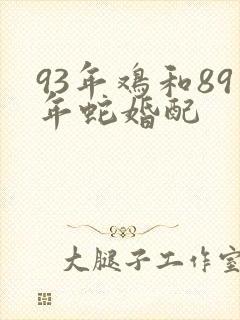 93年鸡和89
年蛇婚配
大腿子工作室